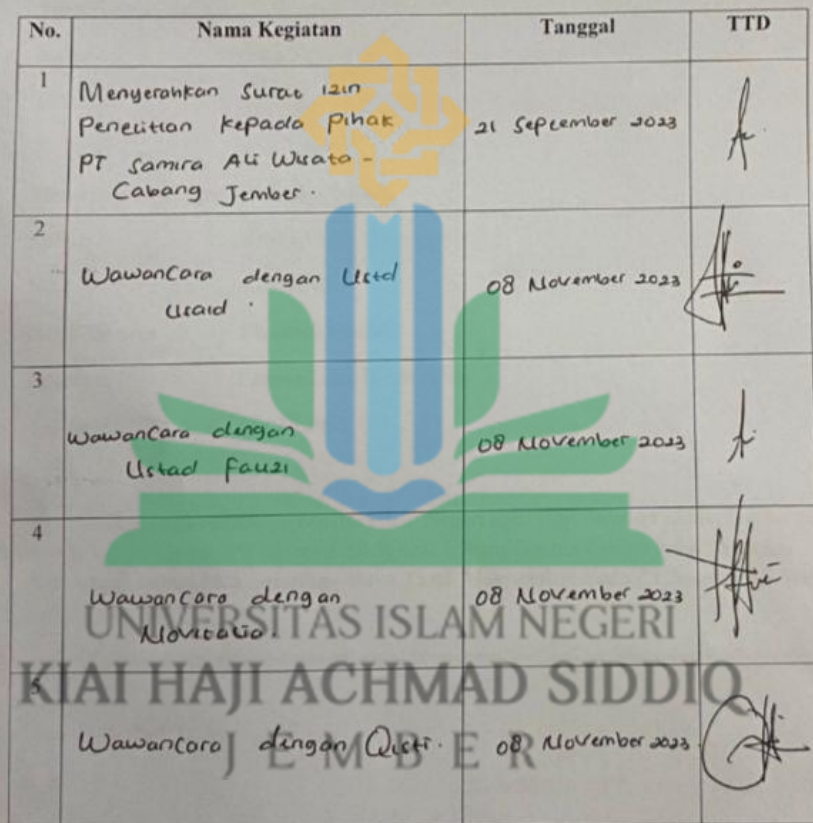 No. Nama Kegiatan Tanggal TTD
1 Menyerahkan Surat izin
Penelitian kepada Pihak
PT Samira Ali Wisata -
Cabang Jember.
21 September 2023
2
Wawancara dengan Ustd
Usaid.
08 November 2023
3
Wawancara dengan
Ustad Fauzi
08 November 2023
4
Wawancara dengan
Novitalia.
08 November 2023
5
Wawancara dengan Qisti.
08 November 2023
UNIVERSITAS ISLAM NEGERI
KIAI HAJI ACHMAD SIDDIQ
JEMBER